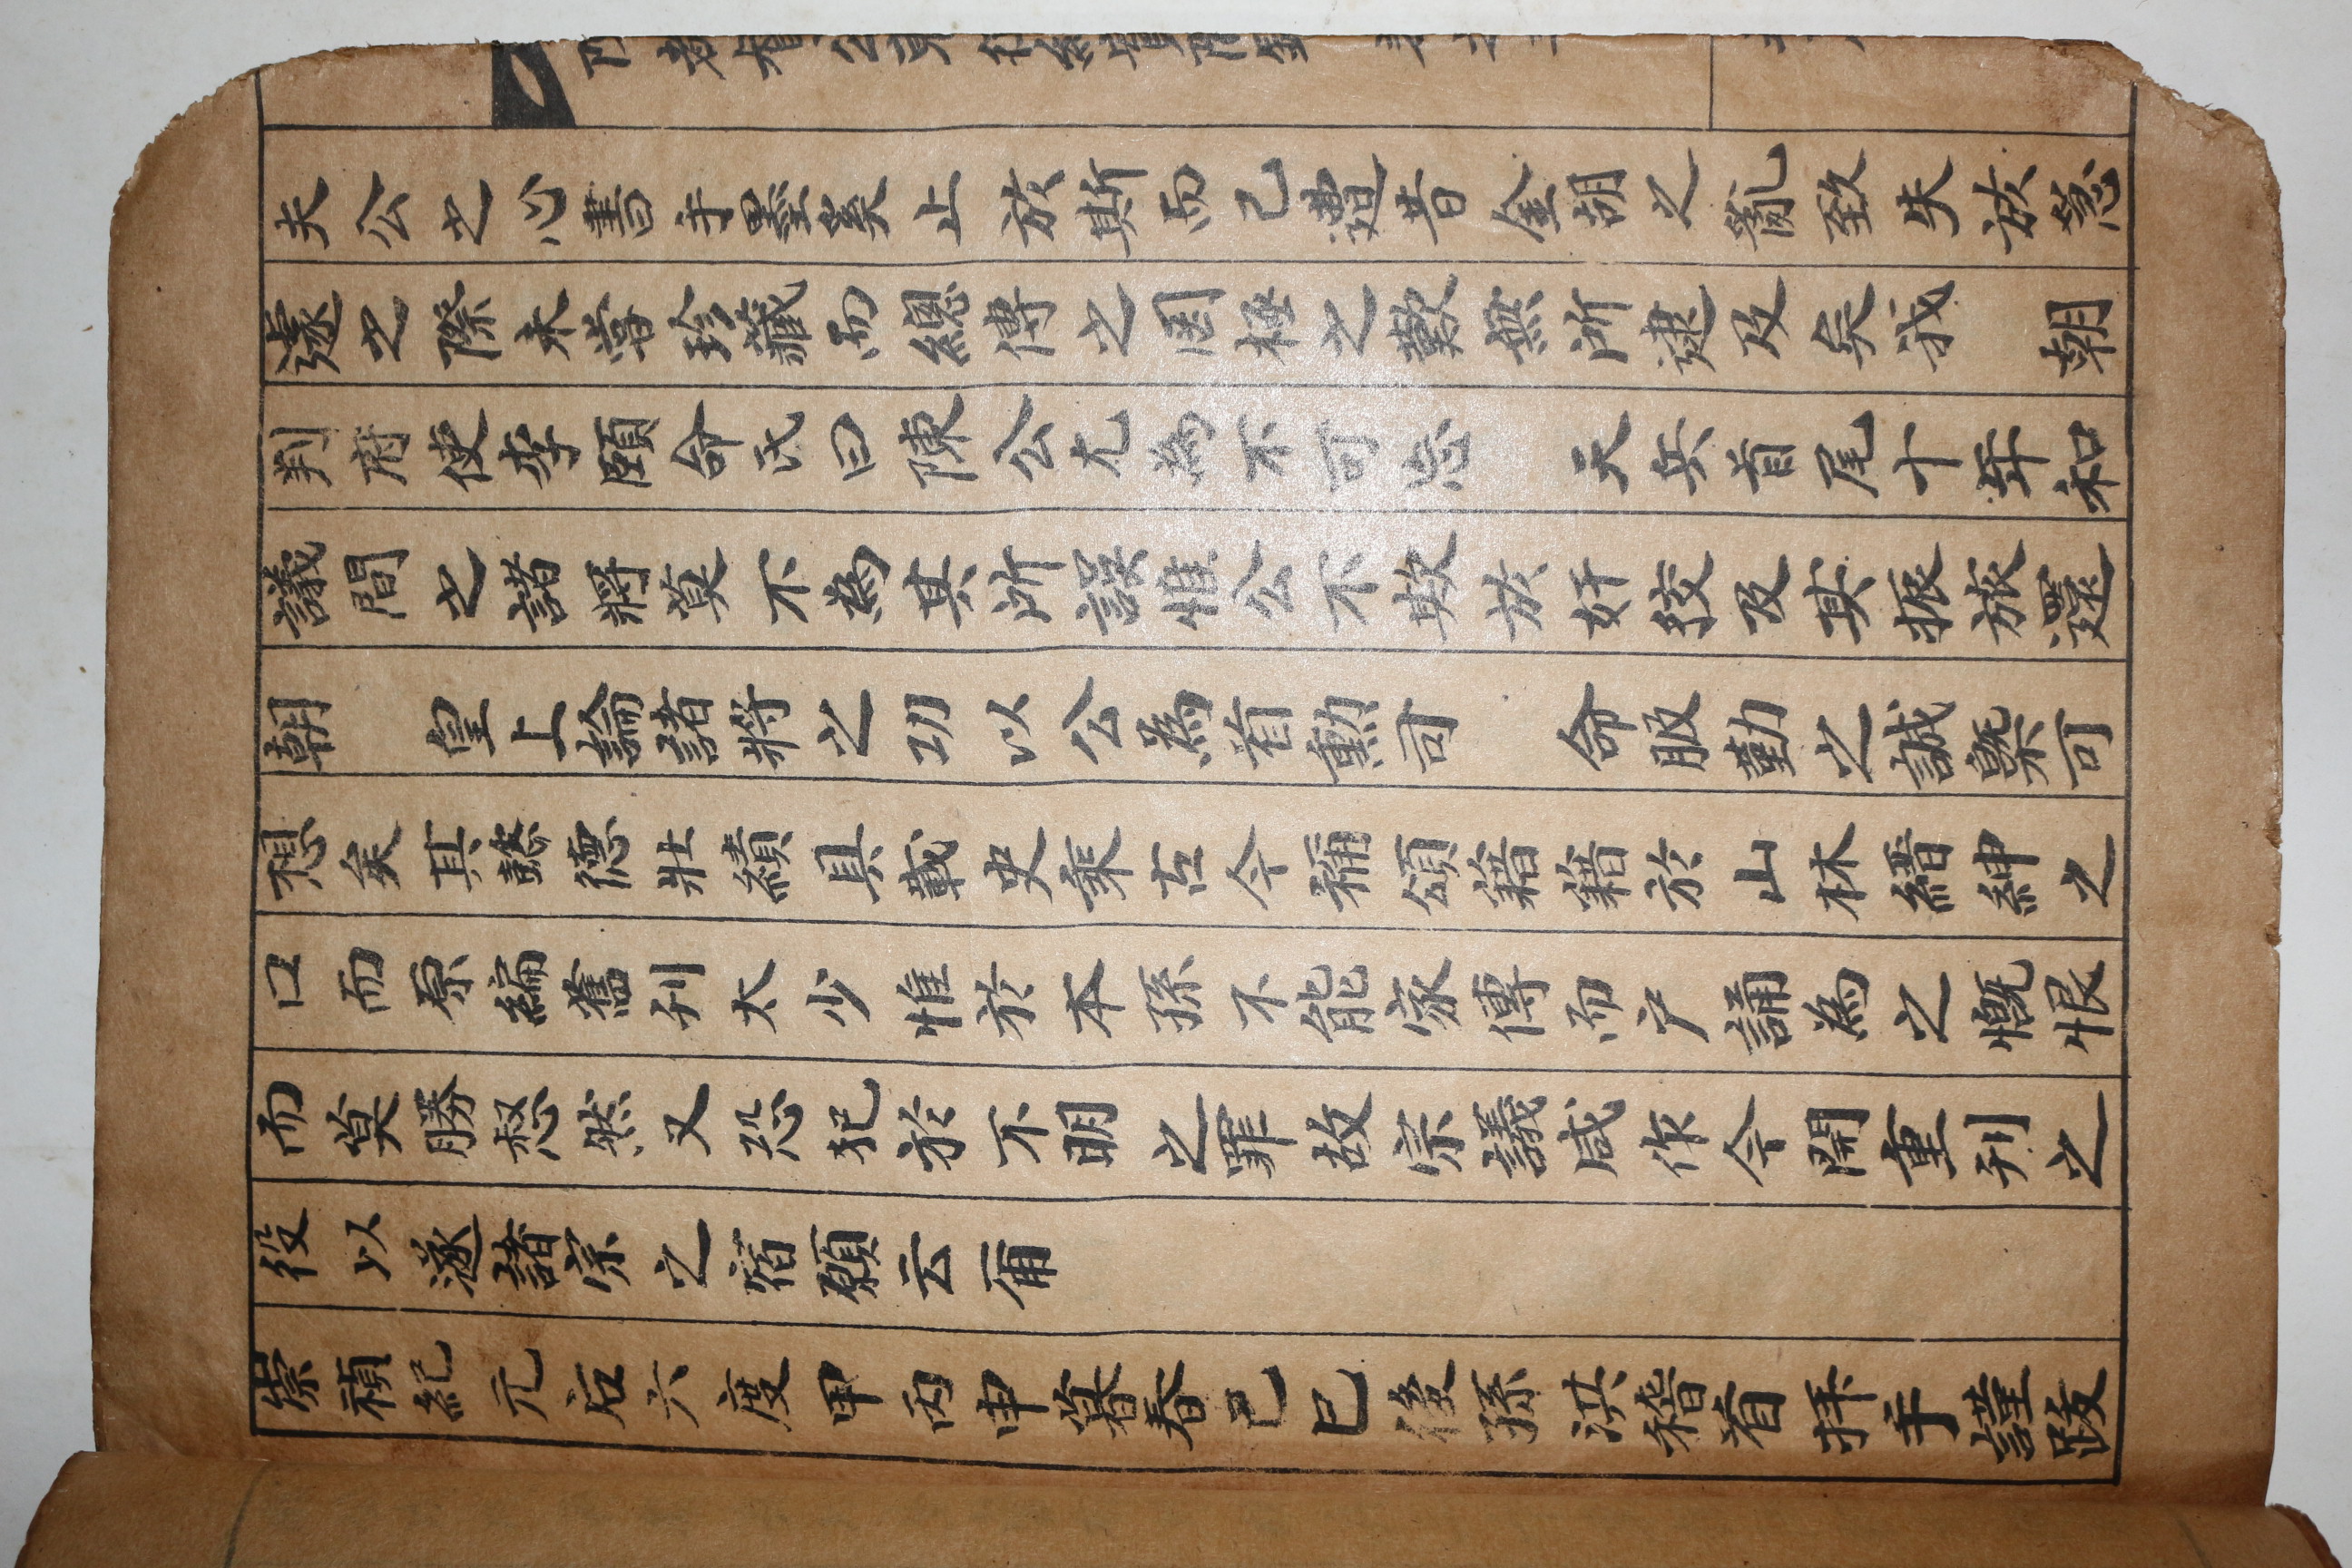 夫公之心書手墨奚止於斯而已遭昔金胡之亂致失於急
遽之際未嘗珍藏而繼傳之罔極之歎無所逮及矣我 朝
判府使李頤命氏曰陳公尤為不可忘 天兵首尾十年和
議間之諸將莫不為其所誤惟公不欺於奸狡及其振旅還
朝 皇上論諸將之功以公為首勲可 命服勤之誠槩可
想矣其懿德壯績具載史乘至今稱頌籍籍於山林縉紳之
口而原編舊刊太少惟於本孫不能家傳而户誦為之慨恨
而莫勝怒然又恐犯於不明之罪故宗議咸作今開重刊之
役以遂諸宗之宿願云爾
崇禎紀元后六度甲丙申暮春己巳後孫洪稽首拜手謹跋